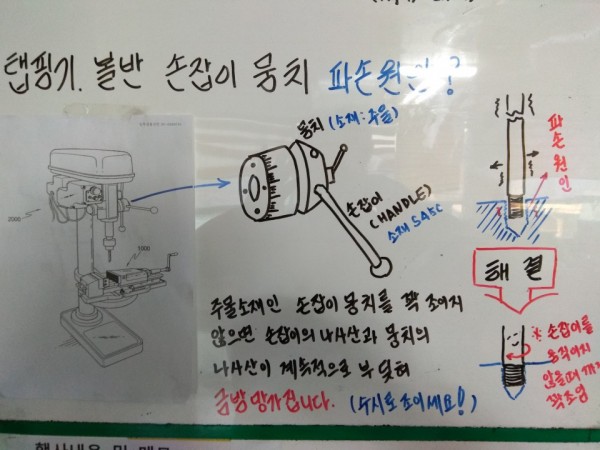 탭핑기. 볼반 손잡이 뭉치 파손원인?
뭉치 (소재:주물)
손잡이
(HANDLE)
소재 S45C
2000
1000
파손원인
해결
주물소재인 손잡이 뭉치를 꽉 조이지
않으면 손잡이의 나사산과 뭉치의
나사산이 계속적으로 부딪혀
금방 망가집니다. (수시로 조이세요!)
※ 손잡이를
움직이지
않을때까지
꽉조임